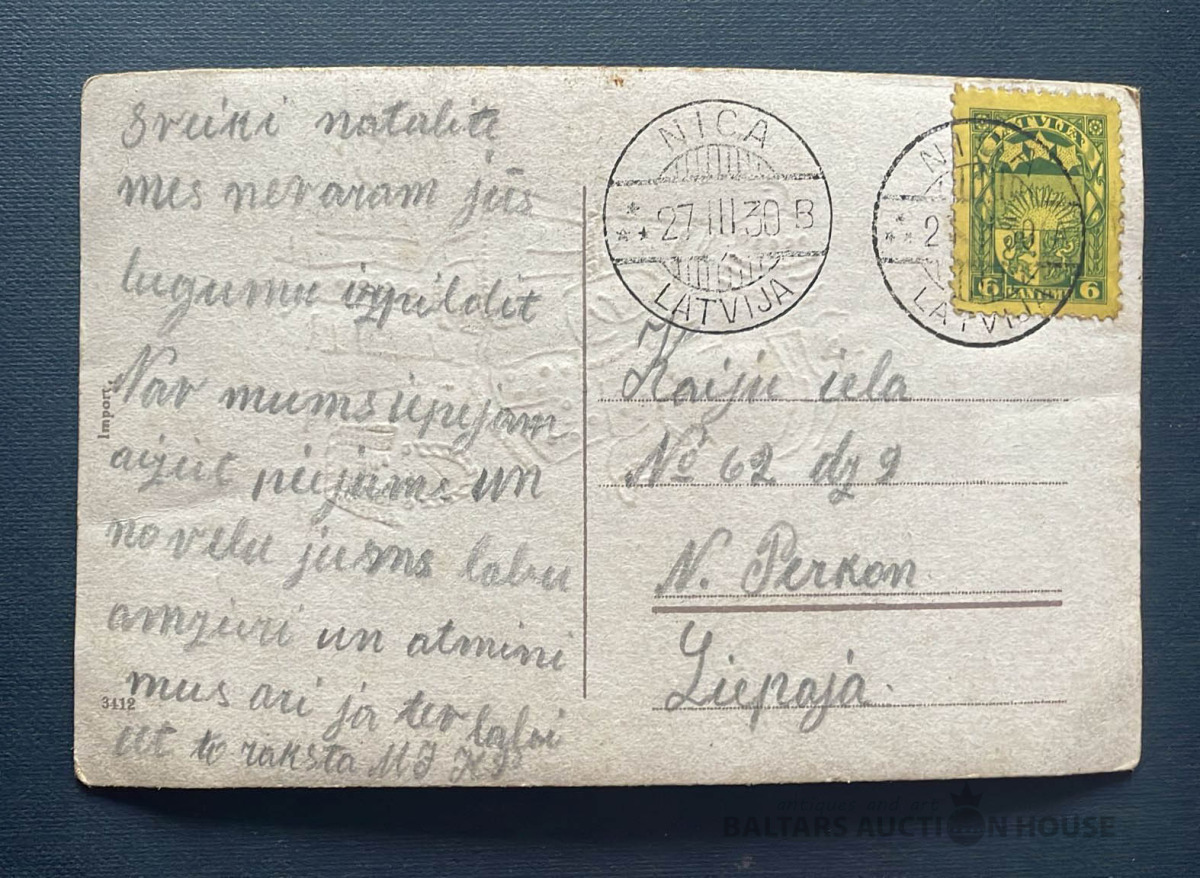 Sveiki natalite
mes nevaram jūs
lugumu izpildit
Nav mums iepejam
aizut piejums un
novelu jusms labu
amziuri un atmini
mus ari ja tev labi
iet to raksta MJ
Import.
3412
NICA
27 III 30 B
LATVIJA
NICA
LATVIJA
LATVIJA
6 SANTIMI 6
Kaiju iela
No 62 dz 9
N. Perkon.
Liepaja.
antiques and art
BALTARS AUCTION HOUSE